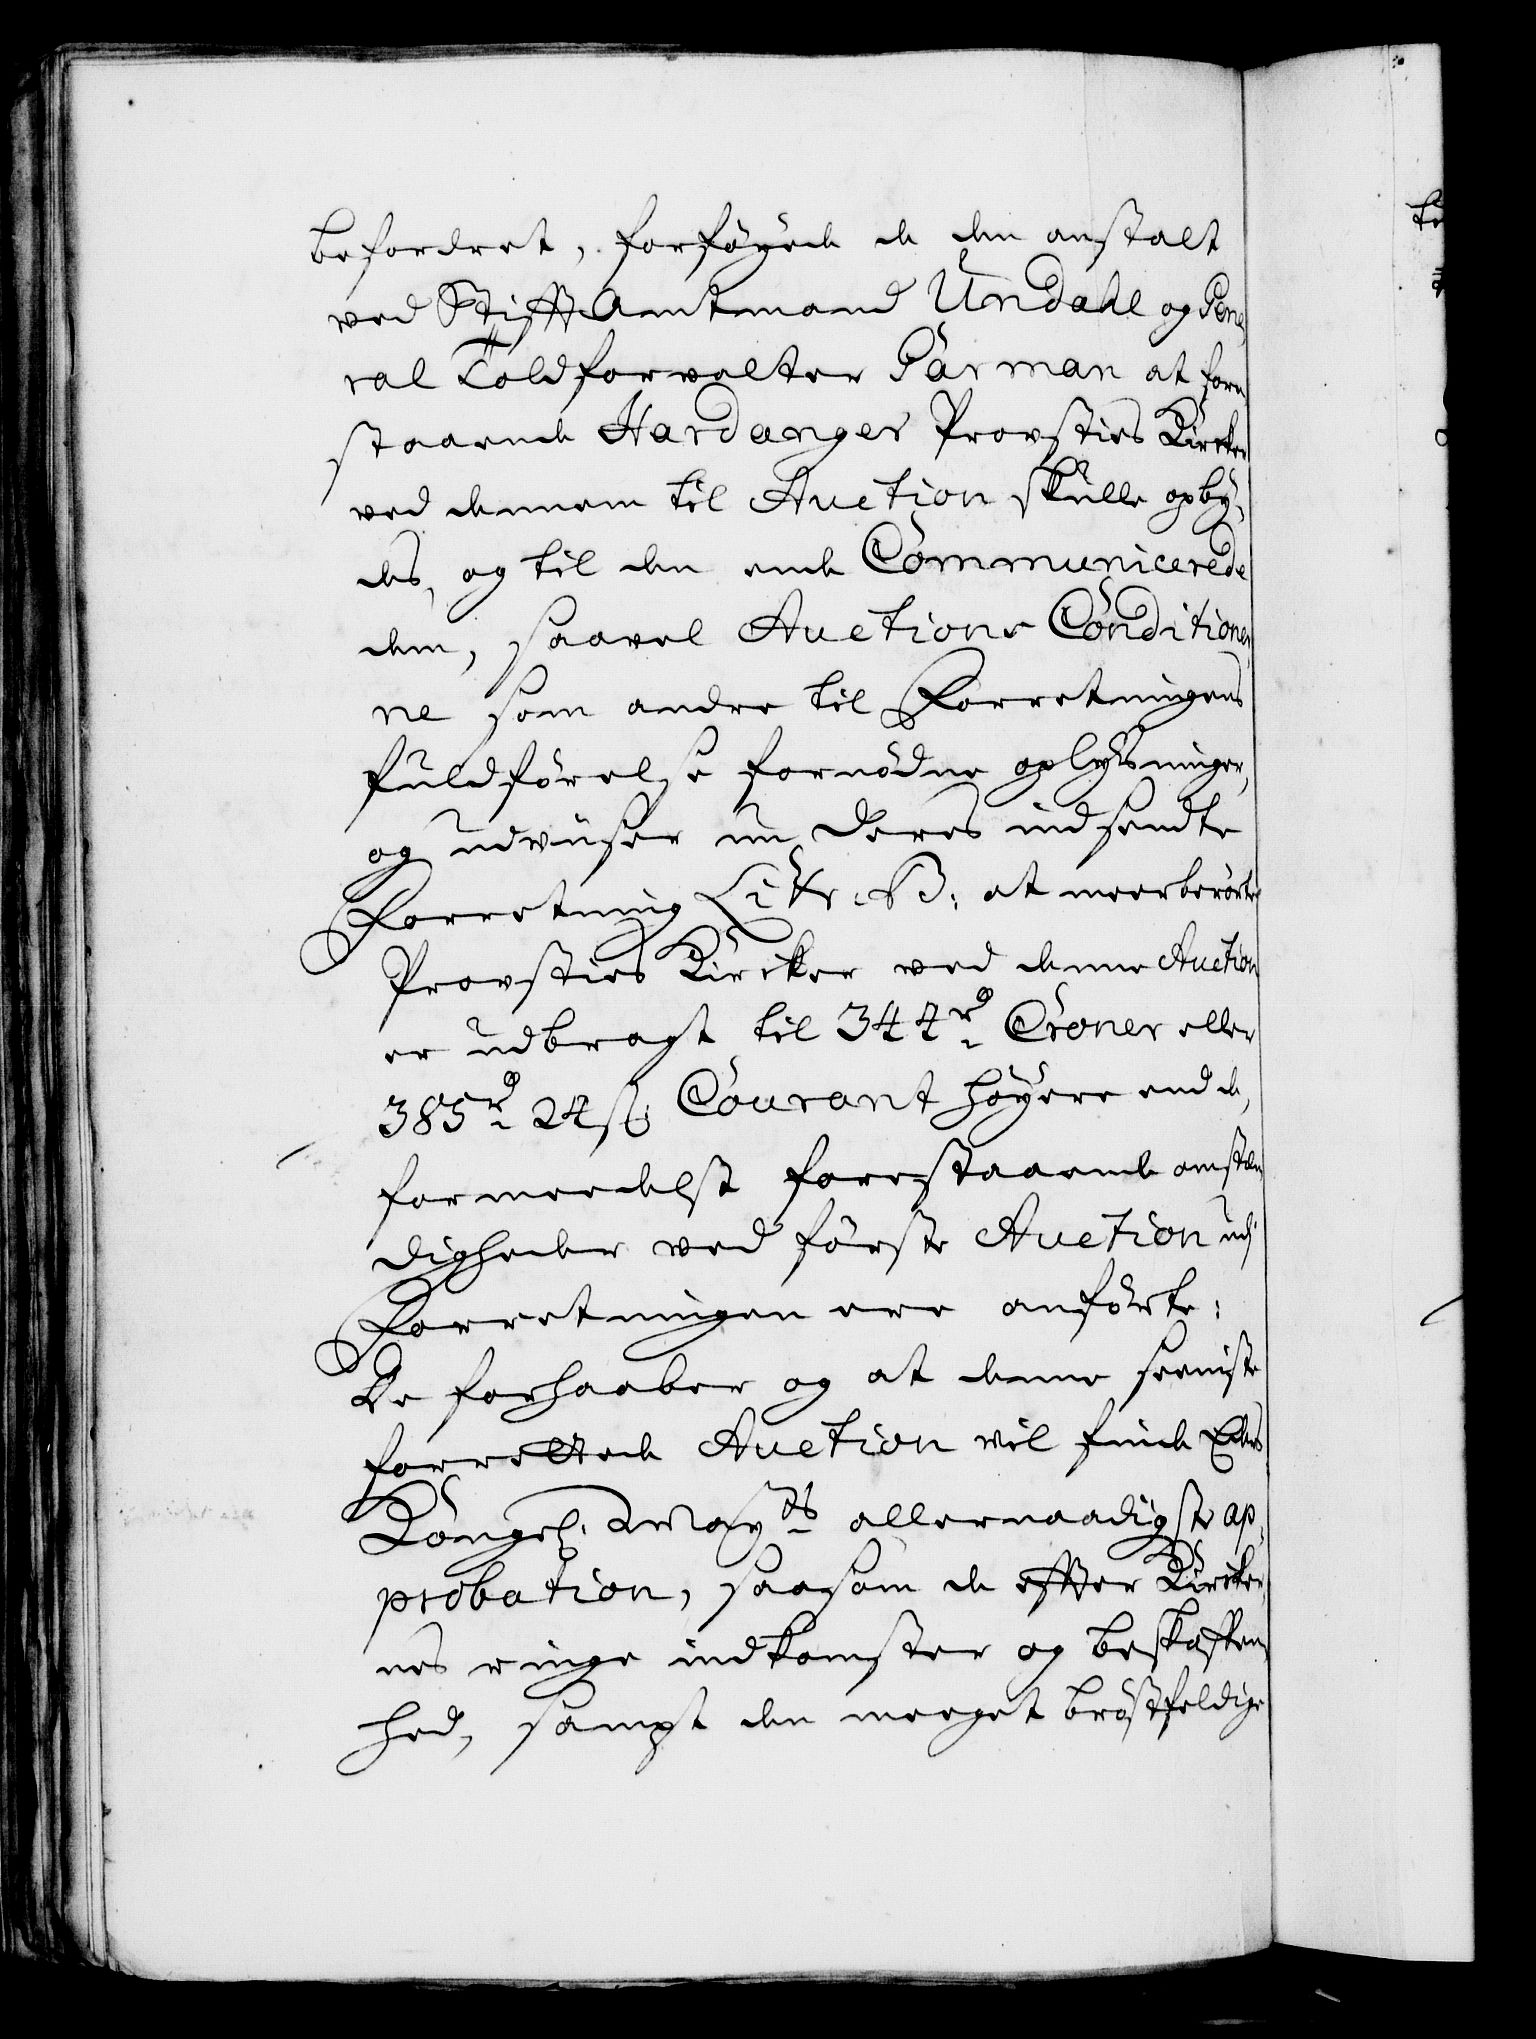 befordret, forføyede de den anstalt
ved Stifft Amtmand Undahl og Gene¬
ral Toldforvalter Garman at fore
staaende Hardanger Provsties Kircker
ved dennem til Auction skulle opby¬
des, og til den ende Communicerede
dem, saavel Auctions Conditioner¬
ne som andre til Forretningens
fuldførelse fornødne oplysninger,
og udviiser nu deres indsendte
Forretning Litr: B: at meerberørte
Provsties Kircker ved denne Auction
er udbragt til 344 rd Croner eller
385 rd 24 s. Courant høyere end de,
formedelst forestaaende omstæn
digheder ved første Auction udj
Forretningen ere anførte:
De forhaaber og at denne seeniste
forrettede Auction vil finde Eders
Kongel. May.ts allernaadigste ap¬
probation, saasom de effter Kircker¬
nes ringe indkomster og beskaffen¬
hed, sampt den meeget brøstfeldige